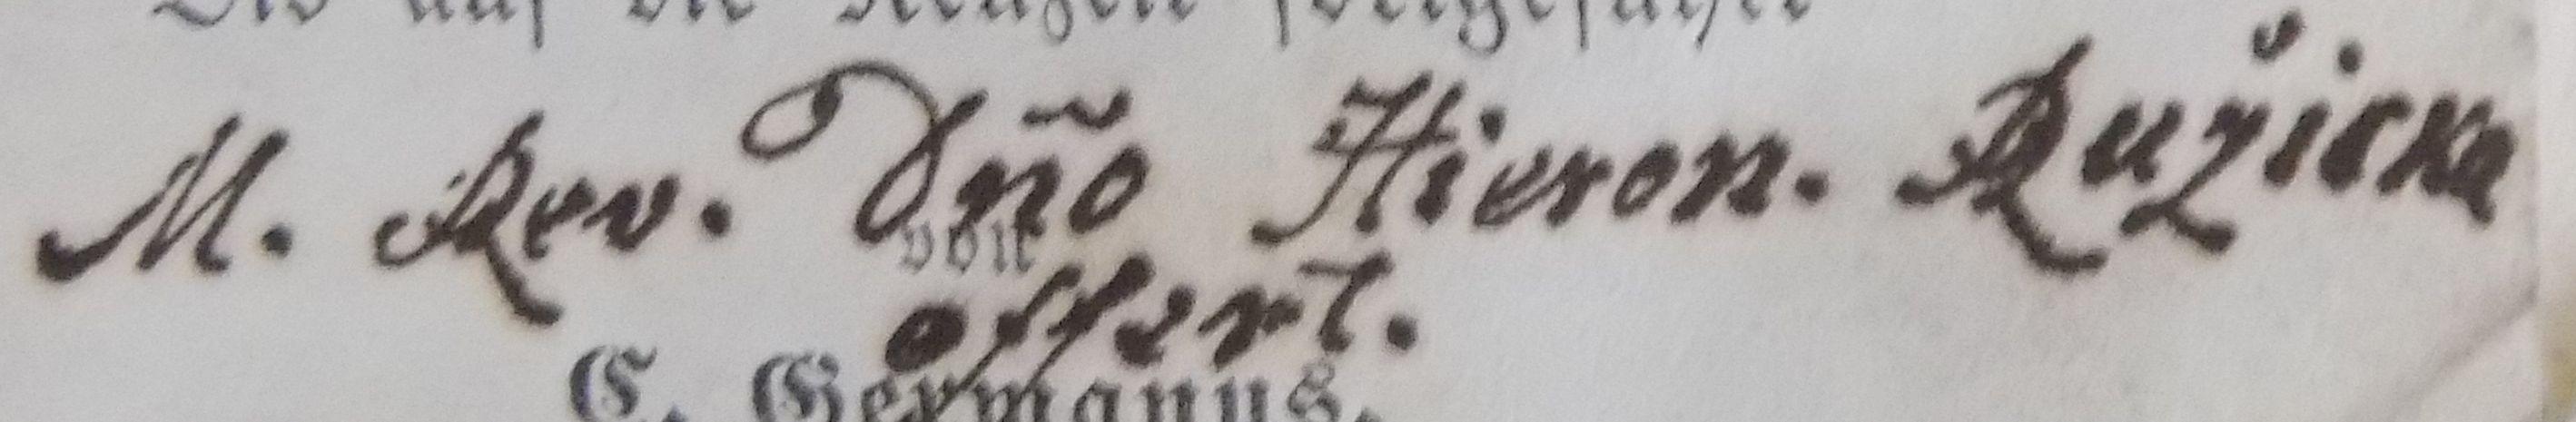 Bis auf die neuzeit fortgeführt
M. Rev. Dño Hieron. Ružicka
von
offert.
C. Germanus.